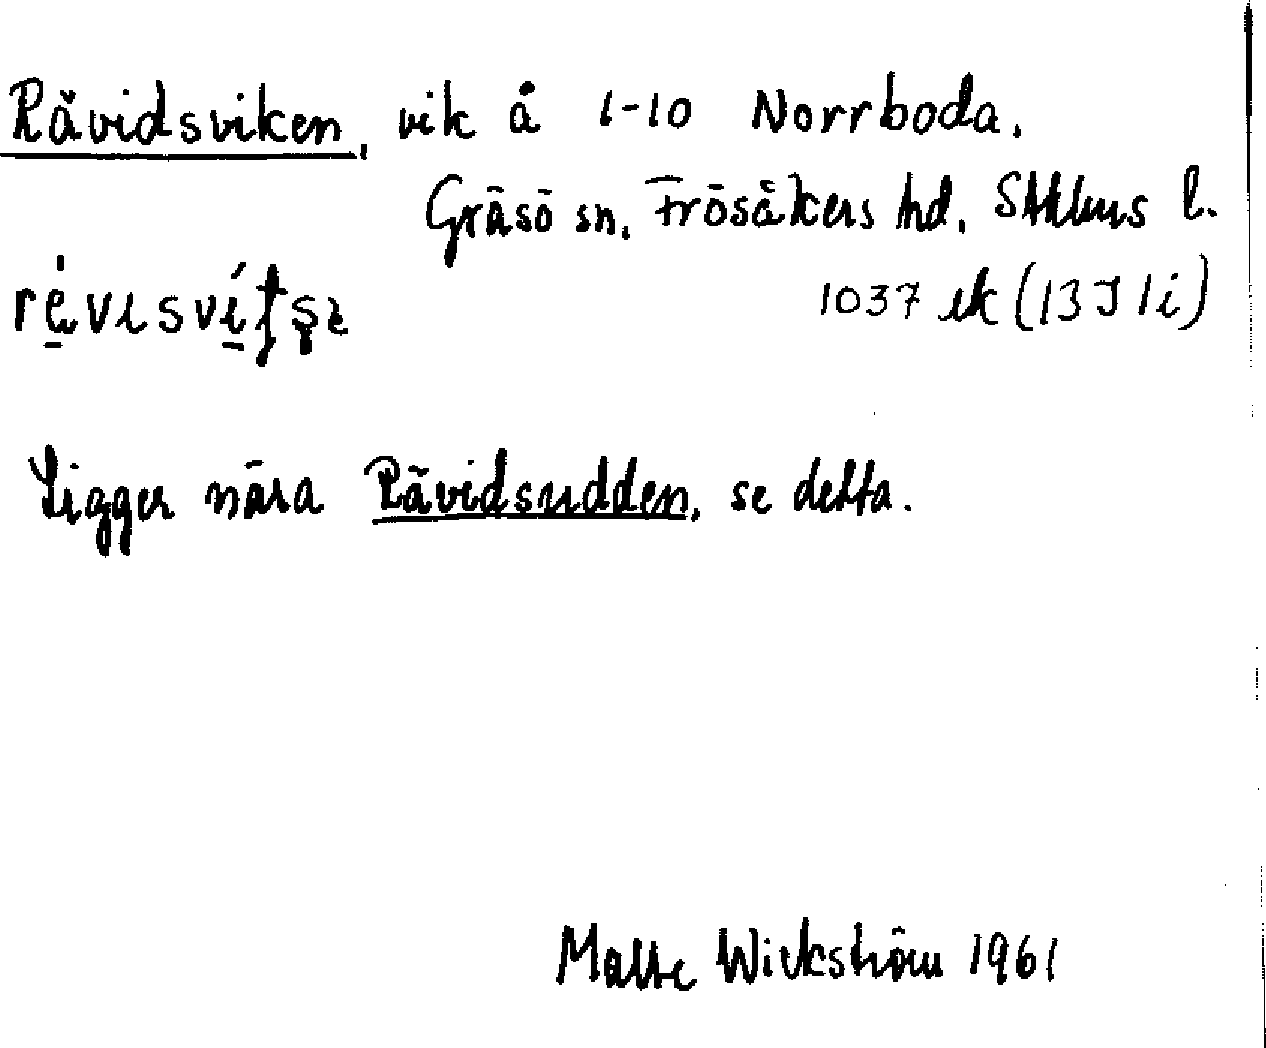 Rävidsviken, vik å 1-10 Norrboda.
Gräsö sn. Frösåkers hd. Sthlms l.
1037 ek (13 I 1i)
Ligger nära Rävidsudden, se detta.
Malte Wickström 1961